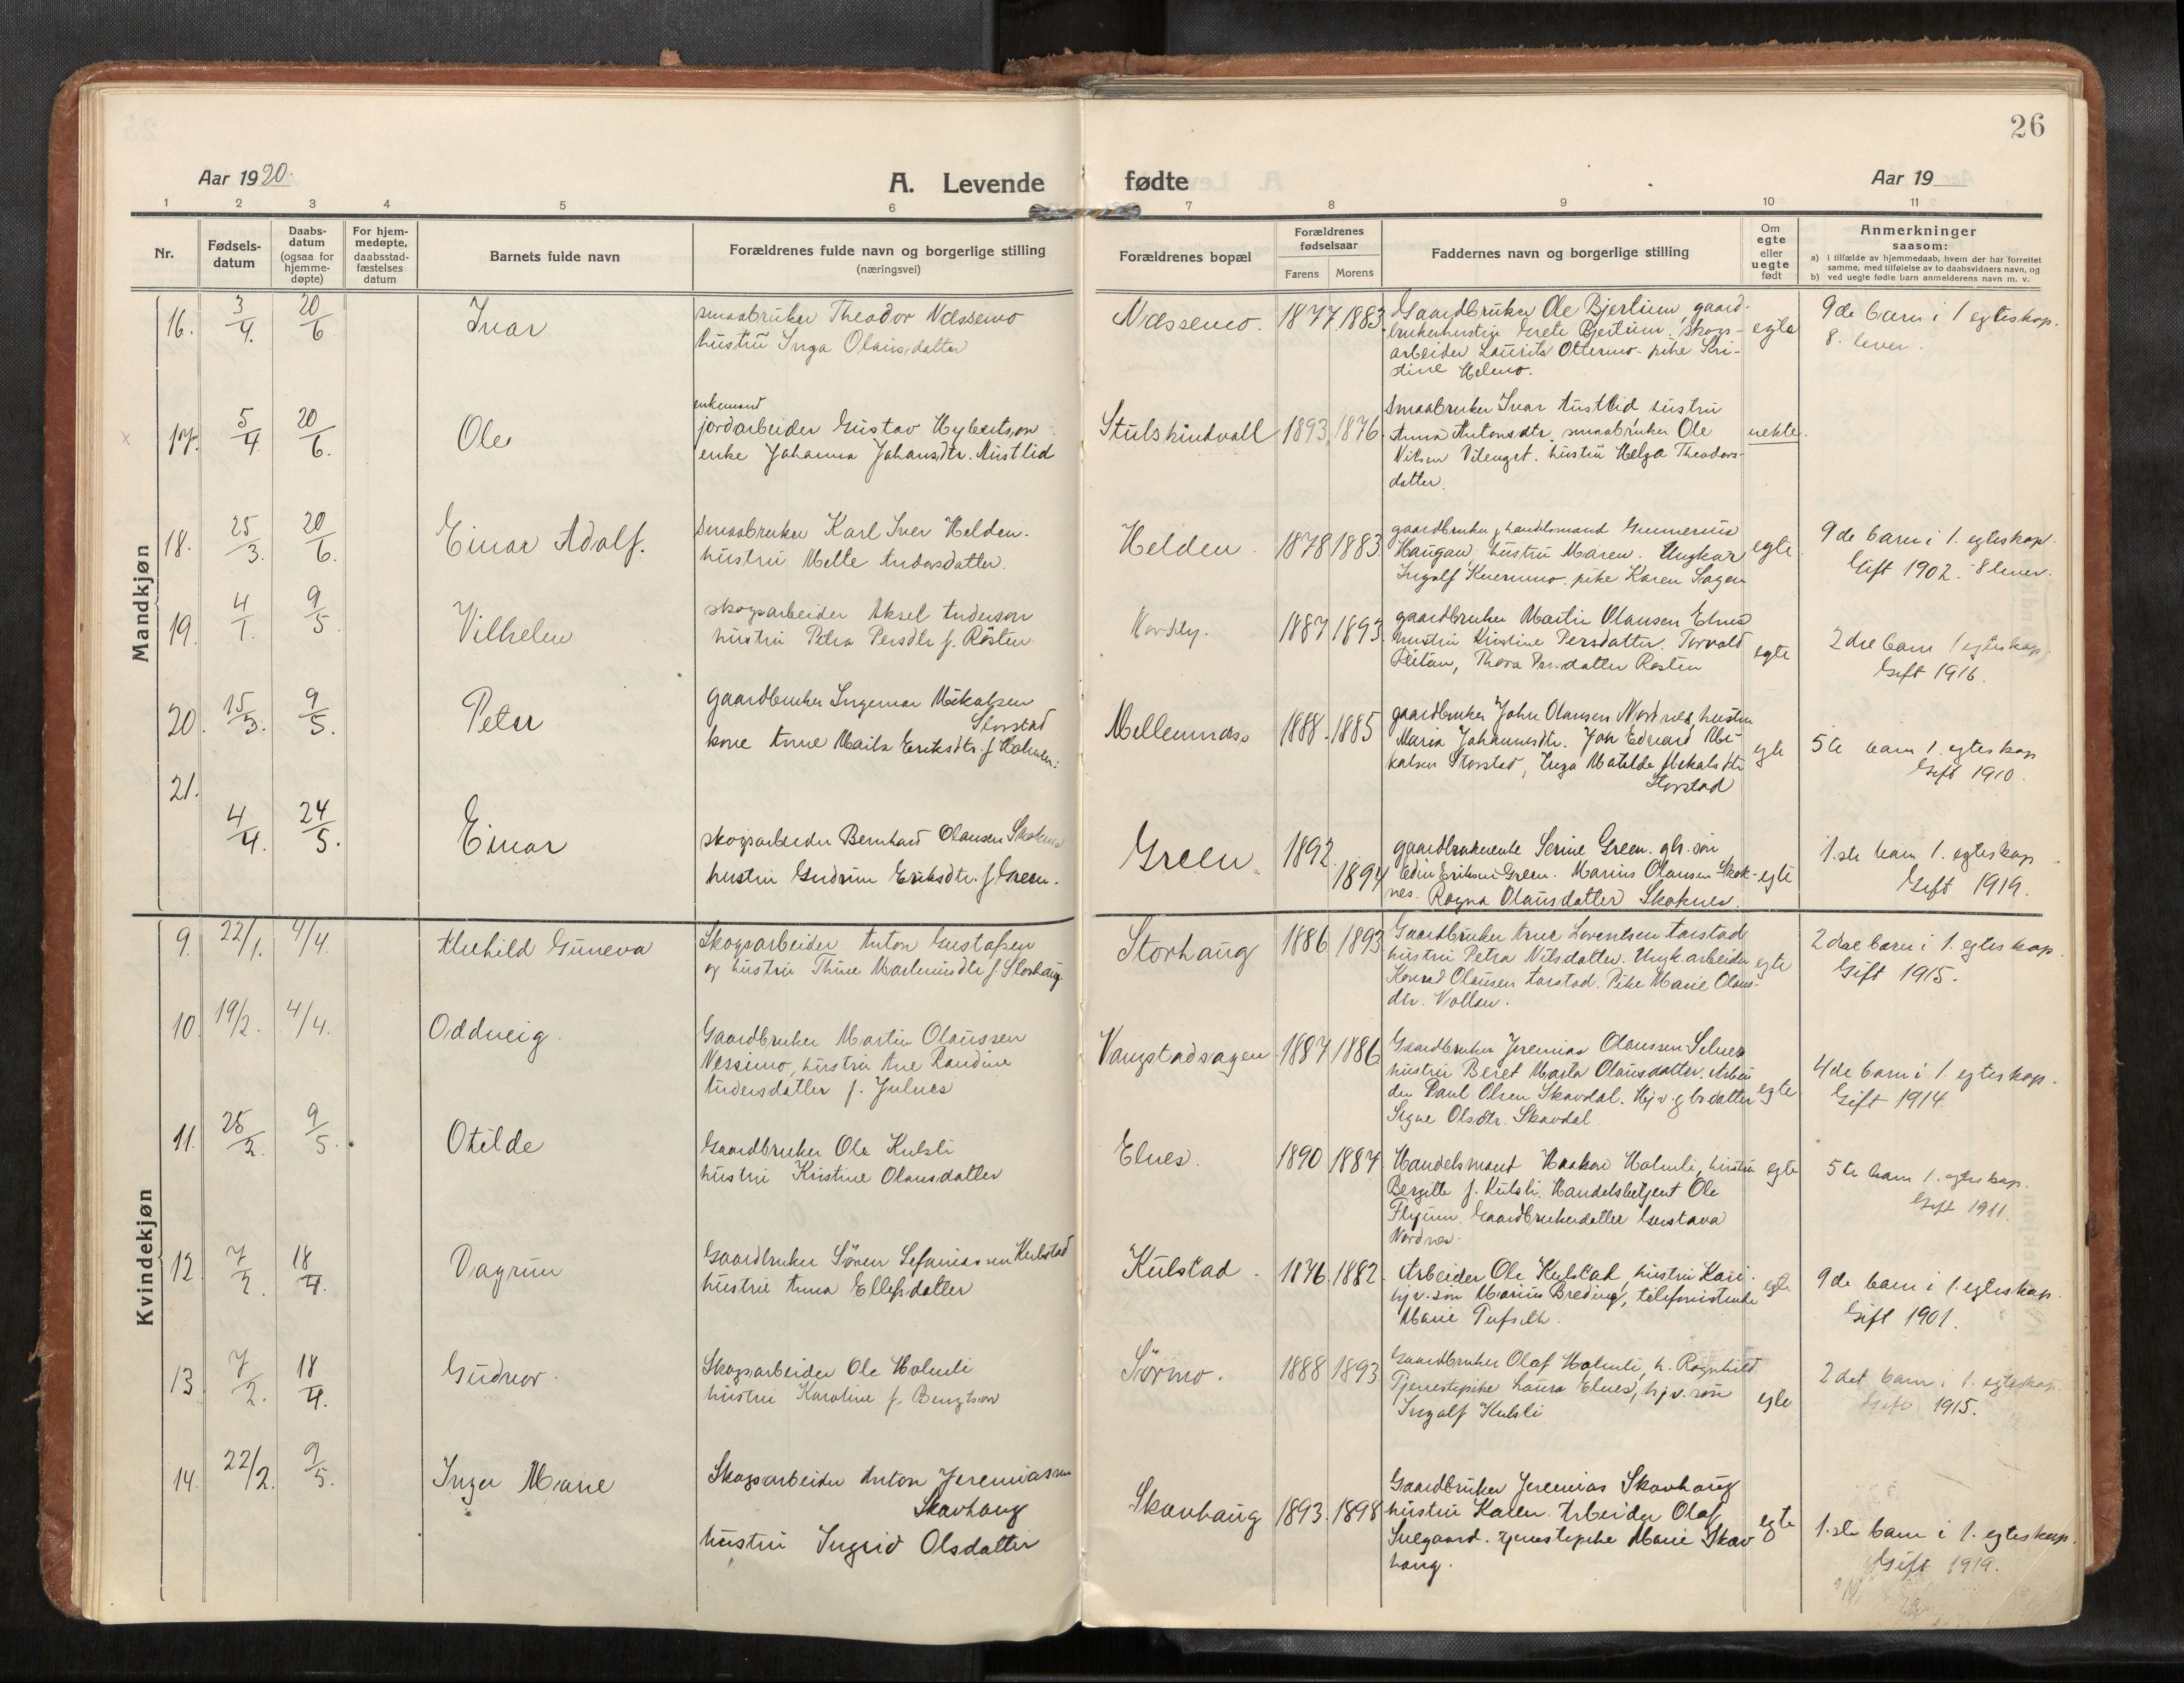 26
Aar 1920.
A. Levende
fødte
Aar 19
1 2 3 4 5 6 7 8 9 10 11
Nr.
Fødsels-
datum
Daabs-
datum
(ogsaa for
hjemme-
døpte)
For hjem-
medøpte,
daabsstad-
fæstelses
datum
Barnets fulde navn
Forældrenes fulde navn og borgerlige stilling
(næringsvei)
Forældrenes bopæl
Forældrenes
fødselsaar
Farens Morens
Faddernes navn og borgerlige stilling
Om
egte
eller
uegte
født
Anmerkninger
saasom:
a) i tilfælde av hjemmedaab, hvem der har forrettet
samme, med tilføielse av to daabsvidners navn, og
b) ved uegte fødte barn anmelderens navn m. v.
Mandkjøn
16. 3/4. 20/6 Ivar
smaabruker Theodor Næssemo
hustru Inga Olausdatter
Næssemo. 1877. 1883.
Gaardbruker Ole Bjerlium, gaard-
brukerhustru Grete Bjerlium. skogs-
arbeider Laurits Ottermo - pike Kri-
stine Helmo.
egte
9de barn i 1 egteskap.
8. lever.
x 17. 5/4 20/6. Ole
enkemand
jordarbeider Gustav
enke Johanna Johansdtr. Austlid
1893. 1876.
Smaabruker Ivar Austlid hustru
Anna Antonsdtr. smaabruker Ole
Nilsen hustru Helga Theodors-
datter.
uekte.
18. 25/3. 20/6. Einar Adolf.
Smaabruker Karl Iver Helden.
hustru Mette Andersdatter.
Helden. 1878 1883.
gaardbruker & handelsmand Gunnerius
Haugan, hustru Maren. Ungkar
Ingolf pike Karen
egte
9de barn i 1. egteskap.
Gift 1902. 8 lever.
19. 4/1. 9/5 Vilhelm
skogsarbeider Aksel Anderson
hustru Petra Persdtr f. Røsten
1887 1893.
gaardbruker Martin Olausen Elnes
hustru Kristine Persdatter. Torvald
Thora Persdatter Røsten
egte
2det barn 1 egteskap
Gift 1916.
20. 15/3. 9/5. Peter
gaardbruker Ingemar Mikalsen
Storstad
kone Anne Marta Eriksdtr. f. Holmen.
1888. 1885
gaardbruker John Olausen Nordnes, hustru
Maria Johannesdtr. Joh Edvard Mi-
kalsen Storstad, Inga Matilde Mikalsdtr
Storstad
egte
5te barn 1. egteskap
Gift 1910.
21.
4/4. 24/5. Einar
skogsarbeider Bernhard Olausen Skoknes
hustru Gudrun Eriksdtr. f. Green.
Green. 1892. 1894
gaardbrukerenke Serine Green. gbr. søn
Edin Eriksen Green. Marius Olausen Skok-
nes. Ragna Olausdatter Skoknes.
egte
1.ste barn 1. egteskap
Gift 1919.
Kvindekjøn
9. 22/1. 4/4. Guneva
Skogsarbeider Anton Gustafsen
og hustru Thine f. Storhaug
Storhaug 1886 1893.
Gaardbruker Arne Lorentsen Aarstad
hustru Petra Nilsdatter. Ungk. arbeider
Konrad Olausen Aarstad. Pike Marie Olaus-
dtr. Vollan.
egte
2det barn i 1. egteskap.
Gift 1915.
10. 19/2. 4/4. Oddveig.
Gaardbruker Martin Olaussen
Nessimo, hustru Ane Randine
Andersdatter f. Julnes
Vangstadsagen 1887 1886
Gaardbruker Jeremias Olaussen Selnes
hustru Beret Marta Olausdatter. Arbei-
der Paul Olsen Skavdal. Hjv. gbr datter
Signe Olsdtr. Skavdal.
egte
4de barn i 1. egteskap.
Gift 1914.
11. 25/2. 9/5. Otilde
Gaardbruker Ole Kulsli
hustru Kristine Olausdatter
Elnes. 1890 1887.
Handelsmand Haakon Holmli, hustru
Bergitte f. Kulsli. Handelsbetjent Ole
Flyum. Gaardbrukerdatter Gustava
Nordnes.
egte
5te barn 1. egteskap.
Gift 1911.
12 7/2. 18/4. Dagrun
Gaardbruker Sören Sefaniassen Kulstad
hustru Anna Ellefsdatter
Kulstad. 1876. 1882.
Arbeider Ole Kulstad, hustru Kari.
hjv. søn Marius Breding, telefonistinde
Marie
egte
9de barn i 1. egteskap.
Gift 1901.
13 7/2. 18/4. Gudvor.
Skogsarbeider Ole Holmli
hustru Karoline f. Bengtson
Sörmo. 1888 1893
Gaardbruker Olaf Holmli, h. Ragnhild
Tjenestepike Laura Elnes, hjv. søn
Ingolf Kulsli
egte
2det barn i 1. egteskap.
Gift 1915.
14. 22/2. 9/5. Inger Marie
Skogsarbeider Anton Jeremiassen
Skavhaug
hustru Ingrid Olsdatter
Skavhaug 1893. 1898
Gaardbruker Jeremias Skavhaug
hustru Karen. Arbeider Olaf
tjenestepike Marie Skav
haug.
egte
1.ste barn i 1. egteskap.
Gift 1919.